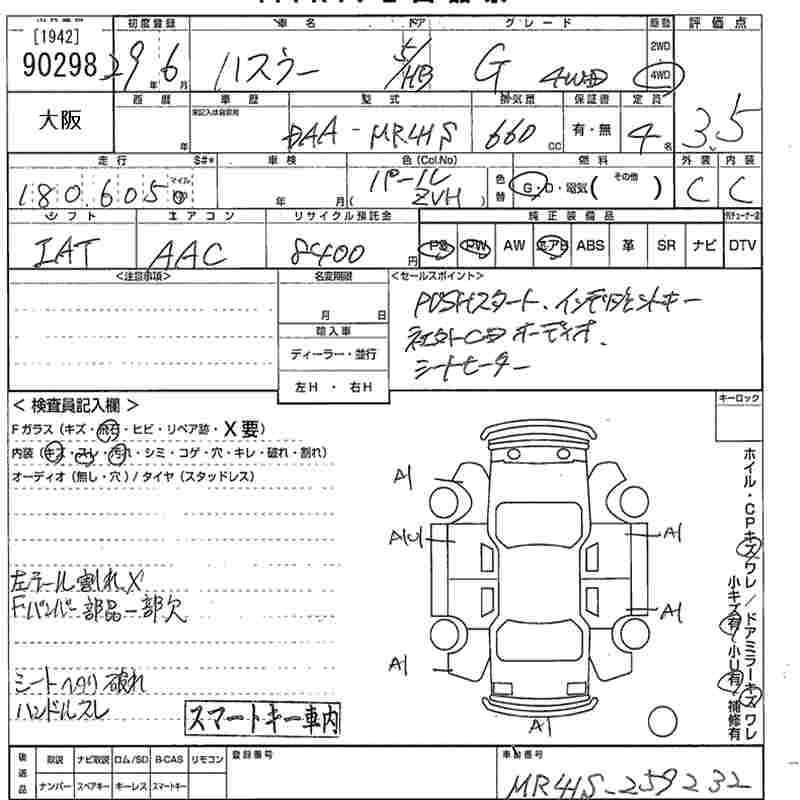 [1942]
90298
初度登録 車名 ドア グレード 駆動 評価点
29年6月 ハスラー 5/HB G 4WD 2WD 4WD 3.5
大阪
西暦 車歴 型式 排気量 保証書 定員
年 未記入は自家用 DAA-MR41S 660cc 有・無 4名
走行 S#* 車検 色(Col.No) 燃料 外装 内装
180,605 マイル km 年 月 パール ( ZVH ) 色替 G・D・電気( その他 ) C C
シフト エアコン リサイクル預託金 純正装備品
IAT AAC 8400円 PS PW AW エアB ABS 革 SR ナビ DTV
<注意事項> 名変期限 <セールスポイント>
月 日 PUSHスタート、インテリジェントキー
輸入車 社外CDオーディオ、
ディーラー・並行 シートヒーター
左H・右H
<検査員記入欄> キーロック
Fガラス(キズ・飛石・ヒビ・リペア跡・X要)
内装(キズ・スレ・汚れ・シミ・コゲ・穴・キレ・破れ・割れ)
オーディオ(無し・穴)/タイヤ(スタッドレス)
A1
A1U1 A1
左テール割れX
Fバンパー部品一部欠 A1
A1
シートヘタリ破れ
ハンドルスレ
スマートキー車内
A1
ホイル・CPキズワレ/ドアミラーキズワレ
小キズ有/小U有/補修有
後送品 取説 ナビ取説 ロム/SD B-CAS リモコン 登録番号 車台番号
ナンバー スペアキー キーレス スマートキー MR41S-259232